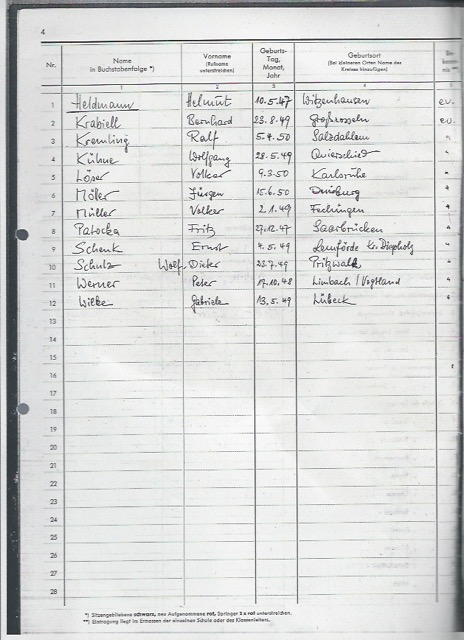 4
Nr. Name in Buchstabenfolge *) Vorname (Rufname unterstreichen) Geburts-Tag, Monat, Jahr Geburtsort (Bei kleineren Orten Name des Kreises hinzufügen)
1 2 3 4
1 Heldmann Helmut 10.5.47 Witzenhausen ev.
2 Krabiell Bernhard 23.8.49 Großrosseln ev.
3 Kremling Ralf 5.4.50 Salzdahlem "
4 Kühne Wolfgang 28.5.49 Quierschied "
5 Löser Volker 9.3.50 Karlsruhe "
6 Möller Jürgen 15.6.50 Duisburg "
7 Müller Volker 2.1.49 Fechingen "
8 Patocka Fritz 27.12.47 Saarbrücken "
9 Schenk Ernst 4.5.49 Lemförde Kr. Diepholz "
10 Schulz Wolf Dieter 23.7.49 Pritzwalk "
11 Werner Peter 17.10.48 Limbach / Vogtland "
12 Wilke Gabriele 13.5.49 Lübeck "
13
14
15
16
17
18
19
20
21
22
23
24
25
26
27
28
*) Sitzengebliebene schwarz, neu Aufgenommene rot, Springer 2 x rot unterstreichen.
**) Eintragung liegt im Ermessen der einzelnen Schule oder des Klassenleiters.